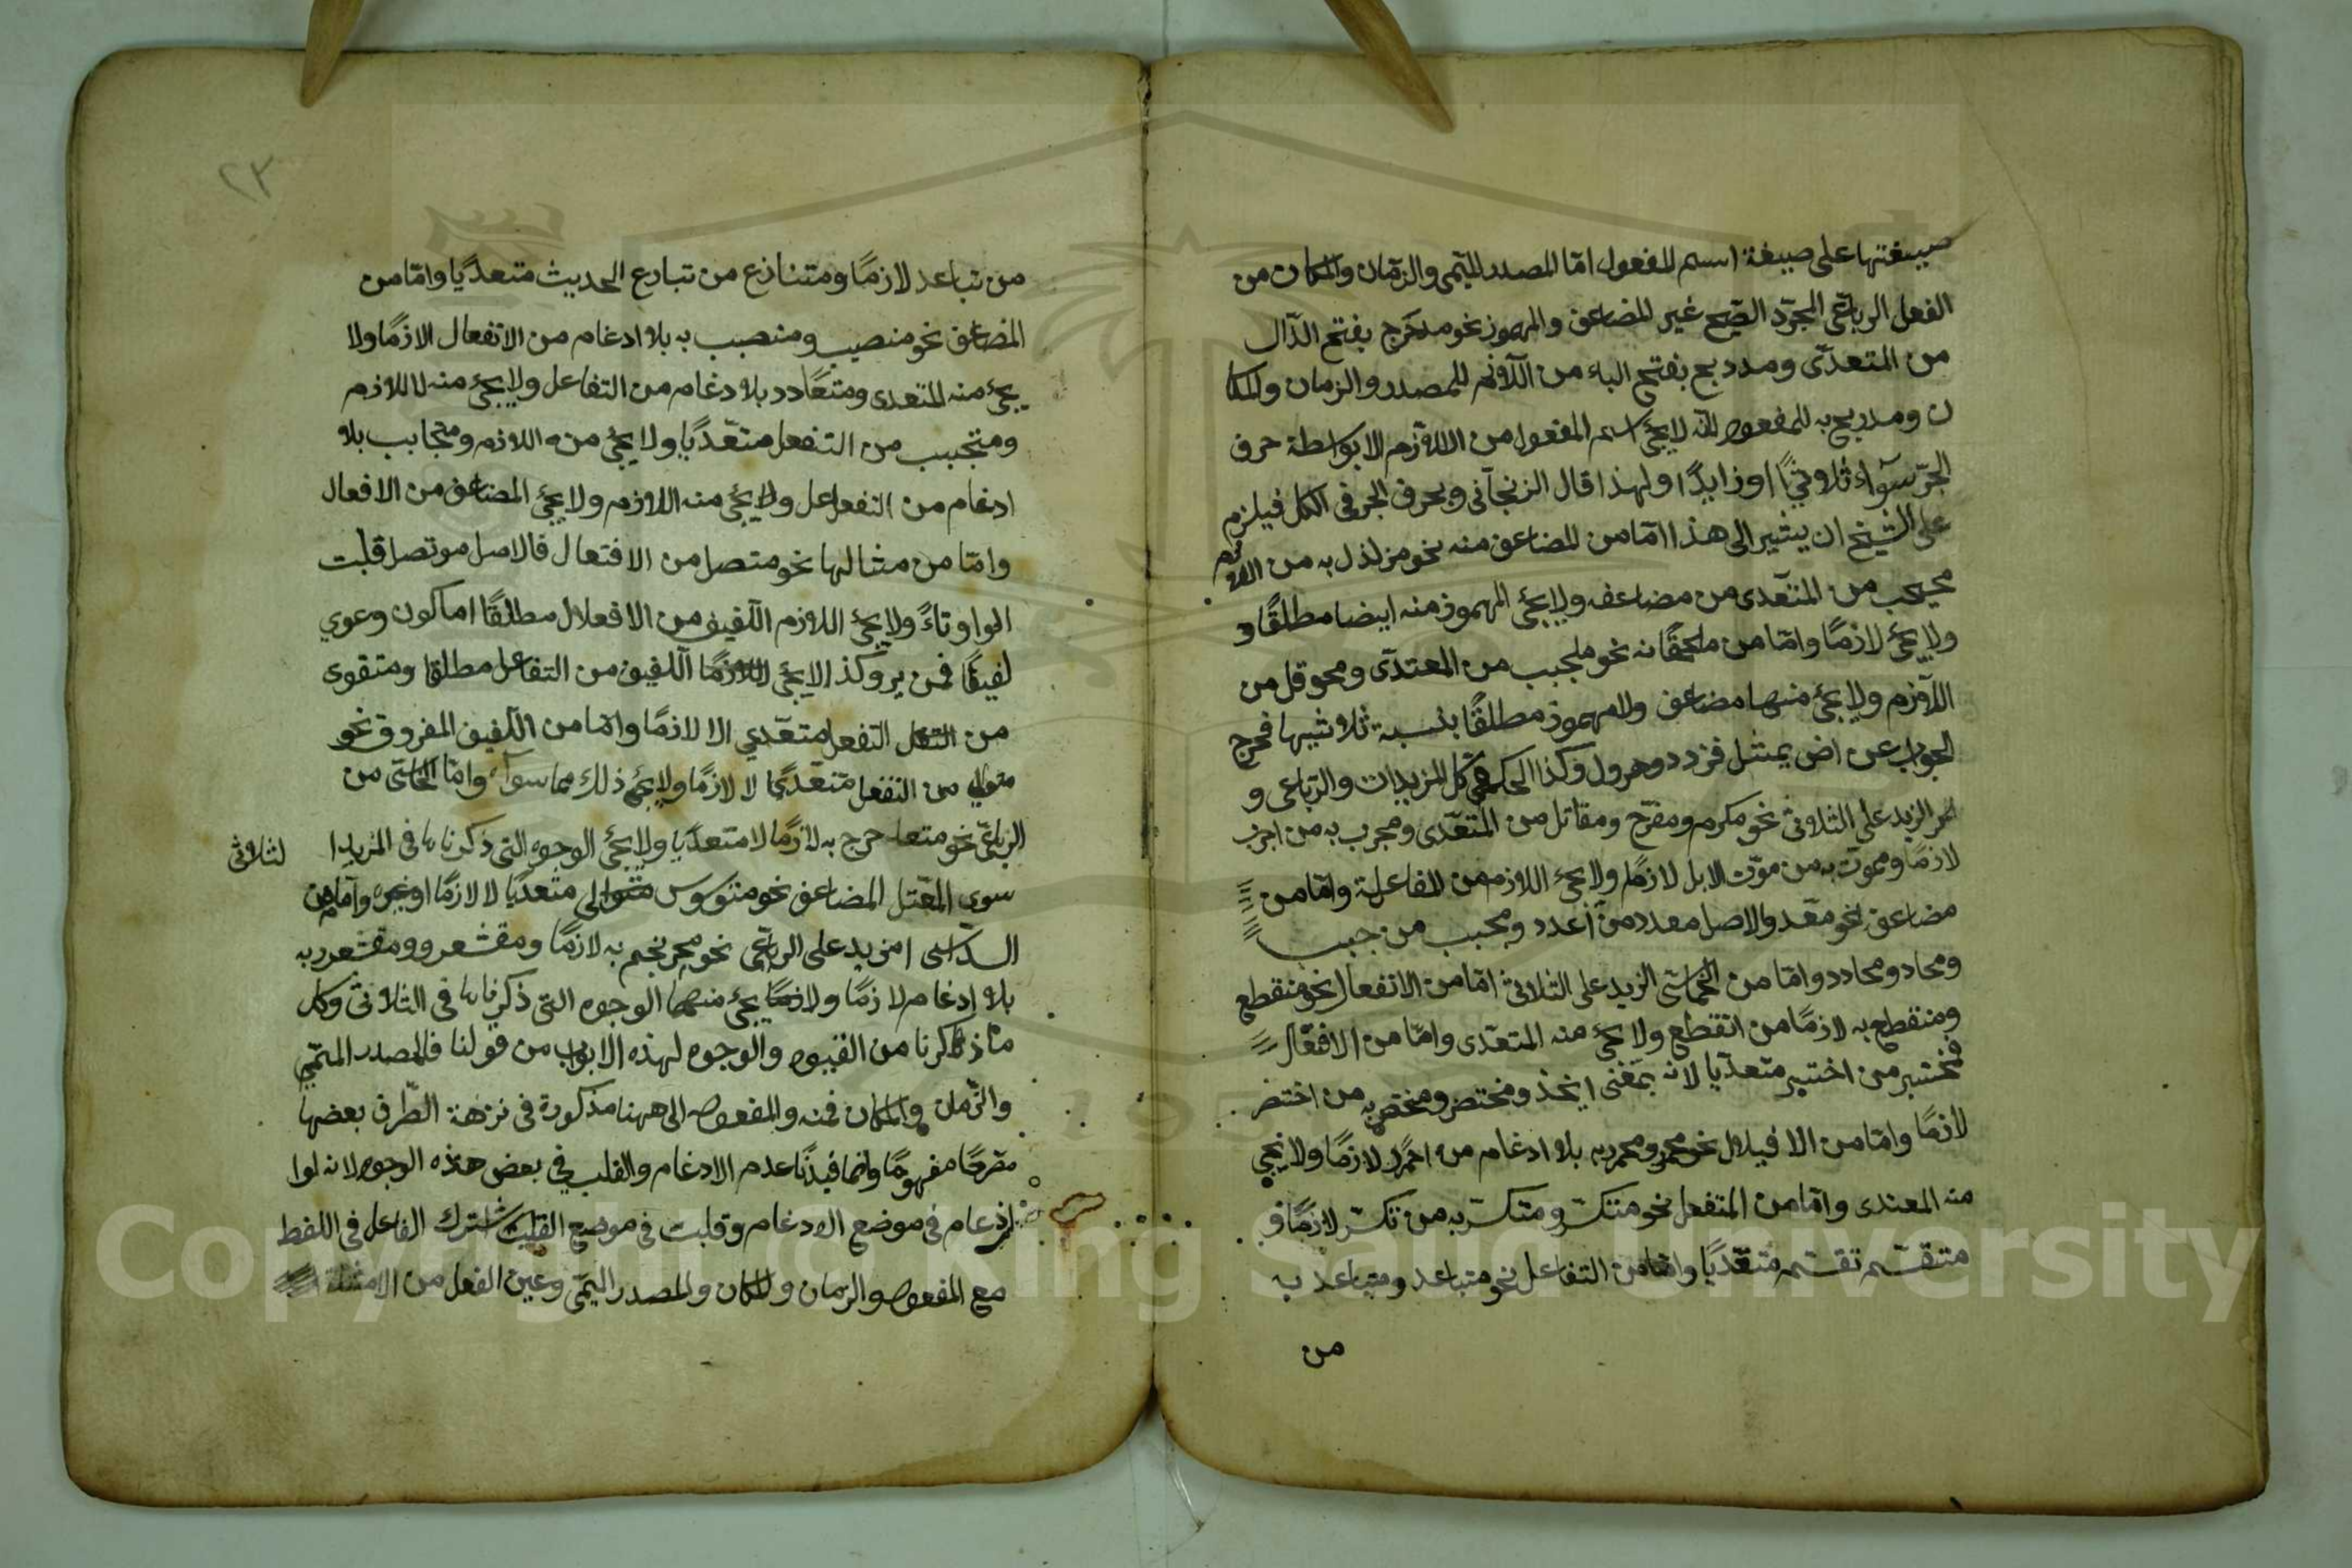 صيغتها على صيغة اسم المفعول امّا المصدر الميمى والزمان والمكان من
الفعل الرباعى المجرّد الصحيح غير المضاعف والمهموز نحو مدحرج بفتح الدّال
من المتعدّى ومدربح بفتح الباء من اللّازم للمصدر والزمان والمكا
ن ومدربح به للمفعول لانّه لا يجئ اسم المفعول من اللازم الا بواسطة حرف
الجرّ سوآء ثلاوثيًّا او زايدًا ولهذا قال الزنجآنى وبحرف الجر فى الكل فيلزم
على الشيخ ان يشير الى هذا امّا من المضاعف منه نحو مزلذل به من اللازم
من المتعّدى من مضاعفه ولا يجئ المهموذ منه ايضا مطلقًا و
ولا يجئ لازمًا وامّا من ملحقًاته نحو ملجبب من المعتدّى ومحوقل من
اللّازم ولا يجئ منها مضاعف ولا مهموذ مطلقًا بنسبة ثلاوثيها فخرج
الجواب عن اض بمثل فزدد وهرول وكذا الحكم فى كل المزيدات والرّباعى و
امر الزيد على الثلاوثى نحو مكرم ومفرّح ومقاتل من المتعّدى ومجرب به من اجرب
لازمًا ومموّت به من موّت الابل لازمًا ولا يجئ اللازم من المفاعلة وامّا من
مضاعف نحو معّد والاصل معدد من أعدد ومجبب من جبب
ومحاد ومحادد وامّا من الخماسّى الزيد على الثلاثى امّا من الانفعال نحو منقطع
ومنقطع به لازمًا من انقطع ولا يجئ منه المتعّدى وامّا من الافتعال
فمختبر من اختبر متعدّيا لانه بمعنى ايخذ ومختصر ومختصر به من اختصر
لازمًا وامّا من الافيلال نحو محمر ومحمر به بلا ادغام من احمّر لازمًا ولا يجئ
منه المعتدى وامّا من المتفعل نحو متكسّر ومتكسّر به من تكسّر لازمًا و
متقسّم تقسّم متعّديًا وامّا من التفاعل نحو متباعد ومتباعد به
من
٢٣
من تباعد لازمًا ومتنازع من تبازع الحديث متعدّيا وامّا من
المضاعف نحو منصبب ومنصبب به بلا ادغام من الانفعال الازمًا ولا
يجئ منه المتعدى ومتعّادد بلا دغام من التفاعل ولا يجئ منه لا للازم
ومتجبب من التفعل متعّديًا ولا يجئ من ه اللازم ومتجابب بلا
ادغام من التفعل اعل ولا يجئ منه اللازم ولا يجئ المضاعف من الافعال
وامّا من مثالها نحو متصل من الافتعال فالاصل موتصل قلبت
الواو تاءً ولا يجئ اللازم اللّفيف من الافعلال مطلقًا اما كون وعوي
لفيفًا فمن يرو كذا لا يجئ اللازمًا اللّفيف من التفاعل مطلقا ومتقوى
من التفعل متعّدي الا لازمًا وامّا من اللّفيف المفروق نحو
متولى من التفعل متعّديًا لا لازمًا ولا يجئ ذلك مما سوآء وامّا الخماسّى من
الرّباعّى نحو متعد حرج به لازمًا لا متعدّيا ولا يجئ الوجوه التى ذكرناها فى المزيد ا
لثلاوثى
سوى المعّتل المضاعف نحو متوسوس متوالى متعديًا لا لازمًا او غيره وآمّا من
السّداسّى امزيد على الرباعّى نحو محرنجم به لازمًا ومقشعر وومقشعرر به
بلا ادغام لازمًا ولازمًا يجئ منهما الوجوه التى ذكرناها فى الثلاوثى وكل
ما ذكرنا من القيود والوجوه لهذه الابواب من قولنا فالمصدر الميّمى
والزّمان والمكان فمنه والمفعول الى ههنا مذكورة فى نزهة الطّرف بعضها
مصّرحًا مفهومًا وانما قيّدنا عدم الادغام والقلب في بعض هذه الوجوه لانه لوا
ادغام فى موضع الادغام وقلبت فى موضع القلب اشترك الفاعل فى اللفط
مع المفعول والزمان والمكان والمصدر اليمّى وعين الفعل من الامثلة
Copyright © King Saud University
1957